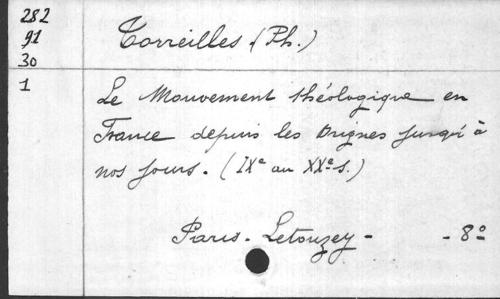 282
91
30
1
Torreilles (Ph.)
Le Mouvement théologique en
France depuis les Origines jusqu'à
nos jours. (IXe au XXe s.)
Paris - Letouzey - - 8º